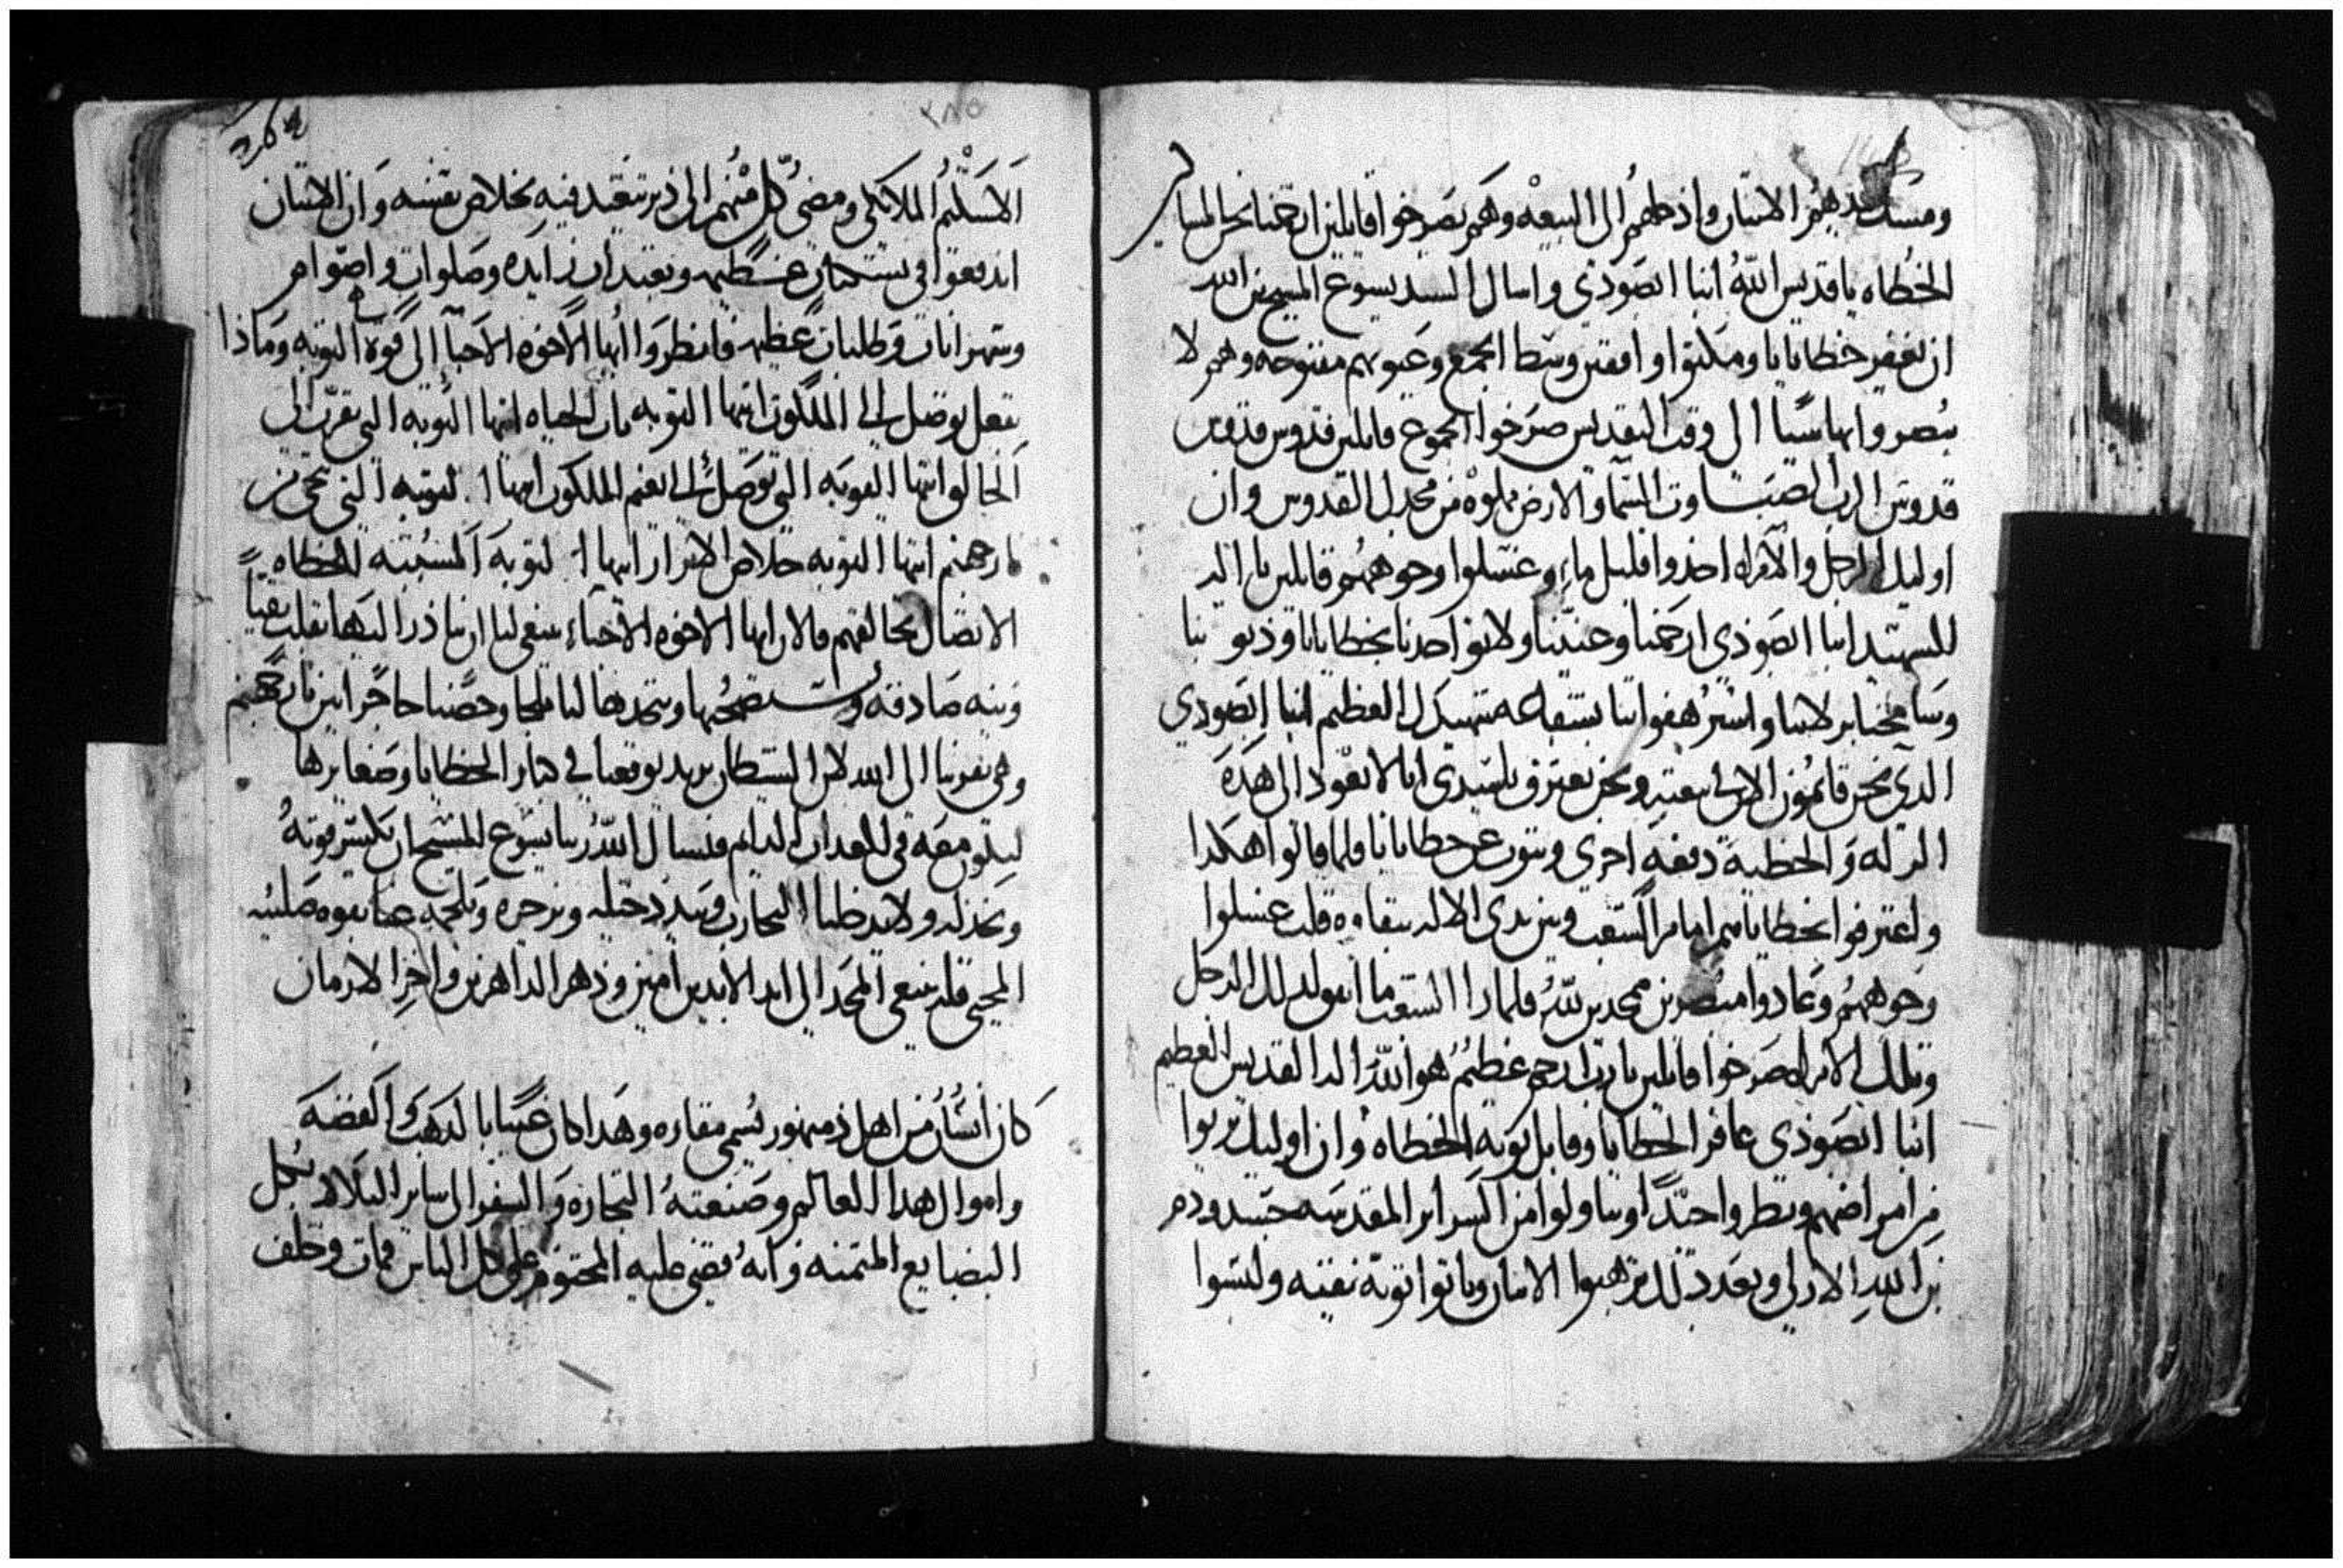 ومسك يدهم الانسان وادخلهم الى البيعه وهم يصرخوا قايلين ارحمنا نحن المساكين
الخطاه يا قديس الله انبا ابصودى واسال السيد يسوع المسيح بن الله
ان يغفر خطايانا ومكثوا واقفين وسط الجمع وعيونهم مفتوحه وهم لا
يبصروا بها شيا الى وقت التقديس صرخوا الجموع قايلين قدوس قدوس
قدوس الرب الصباووت السما والارض مملوه من مجدك القدوس وان
اوليك الرجل والامراه اخدوا قليل ماء وغسلوا وجوههم قايلين يا اله
الشهيد انبا ابصودى ارحمنا وحنينا ولا تواخدنا بخطايانا وذنوبنا
وسامحنا بزلاتنا واستر هفواتنا بشفاعه شهيدك العظيم انبا ابصودي
الدي نحن قايمون الان في بيعته ونحن نعترف يا سيدى اننا لا نعود الى هده
الزله والخطية دفعه اخرى ونتوب عن خطايانا فلما قالوا هكدا
واعترفوا بخطاياهم امام الشعب وبين يدى الاله بنقاوه قلب غسلوا
وجوههم وعادوا مبصرين ممجدين لله فلما راا الشعب ما اتفق لدلك الرجل
وتلك الامراه صرخوا قايلين يا رب ارحم عظيم هو الله اله القديس العظيم
انبا ابصودى غافر الخطايا وقابل توبه الخطاه وان اوليك بريوا
من امراضهم ونظروا جيدا وتناولوا من السراير المقدسه جسد ودم
بن الله الازلي وبعد دلك ترهبوا الاتنان وتابوا توبة نقيه ولبسوا
الاسكيم الملايكى ومضى كل منهم الى دير يتعبد فيه بخلاص نفسه وان الاتنان
اندفعوا في نسكيات عظيمه وتعبدات زايده وصلوات واصوام
وسهرانات وطلبات عظيمه فانظروا ايها الاخوه الاحبا الى قوة التوبه وماذا
تفعل توصل الى الملكوت ايتها التوبه باب الحياه ايتها التوبه التى تقرب الى
الخالق ايتها التوبه التى توصل الى نعيم الملكوت ايتها التوبه التى تحمي من
نار جهنم ايتها التوبه خلاص الابرار ايتها التوبه المسببه للخطاه
الاتصال بخالقهم فالان ايها الاخوه الاحباء ينبغى لنا ان نبادر اليها بقلب نقيا
ونيه صادقه ونستصحبها ونتخدها لنا ملجا وحصنا حاجزا بين نار جهنم
وهى تقربنا الى الله لان الشيطان يريد يوقعنا في كبار الخطايا وصغايرها
ليكون معه في العداب الدايم فنسال الله ربنا يسوع المسيح ان يكسر قوته
ويخذله ولا يدخلنا التجارب ويبدد حيله ويزجره ويلجمه عنا بقوه صليبه
المحيى فله ينبغى المجد الى ابد الابدين امين ودهر الداهرين واخر الازمان
كان انسان من اهل دمنهور يسمى مقاره وهدا كان غنيا بالدهب والفضه
واموال هدا العالم وصنعته التجاره والسفر الى ساير البلاد بكل
البضايع المتمنه وانه قضى عليه المحتوم على كل الناس فمات وخلف